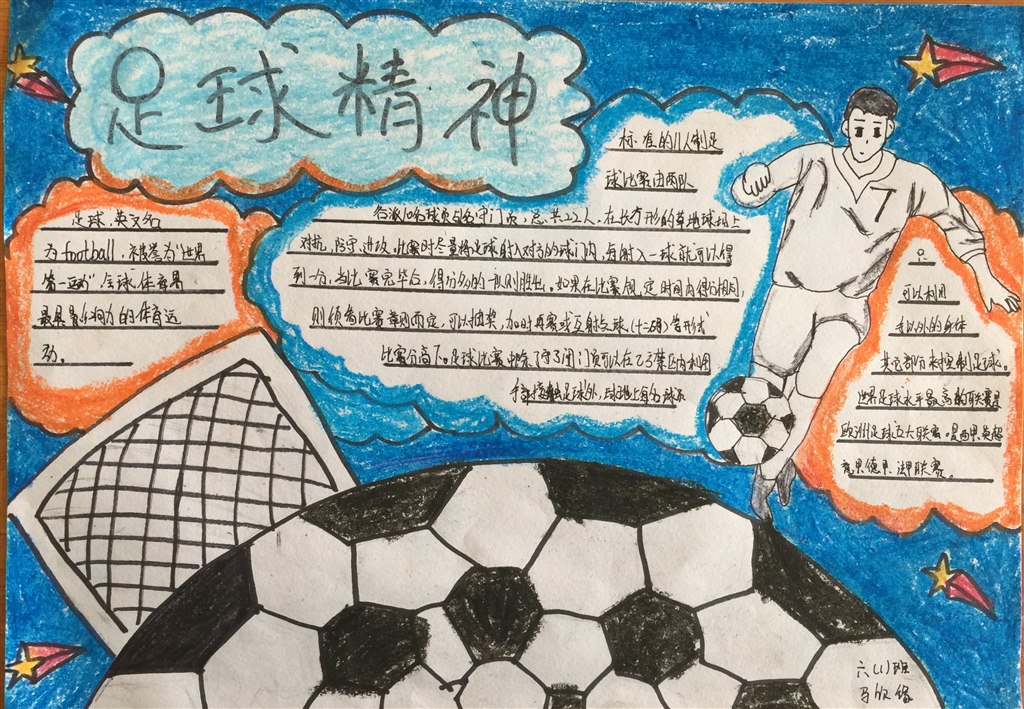 足球精神
足球,英文名
为football,被誉为"世界
第一运动"全球体育界
最具影响力的体育运
动。
标准的11人制足
球比赛由两队
各派10名球员与1名守门员,总共22人,在长方形的草地球场上
对抗,防守,进攻。比赛时尽量将足球射入对方的球门内,每射入一球就可以得
到一分,当比赛完毕后,得分多的一队则胜出,如果在比赛规定时间内得分相同,
则须看比赛章则而定,可以抽奖,加时再赛或互射点球(十二码)等形式
比赛分高下。足球比赛中除了守门员可以在己方禁区内利用
手部接触足球外,球场上每名球员
只
可以利用
手以外的身体
其它部分来控制足球。
世界足球水平最高的联赛是
欧洲足球五大联赛。是西甲,英超
意甲德甲,法甲联赛。
六(1)班